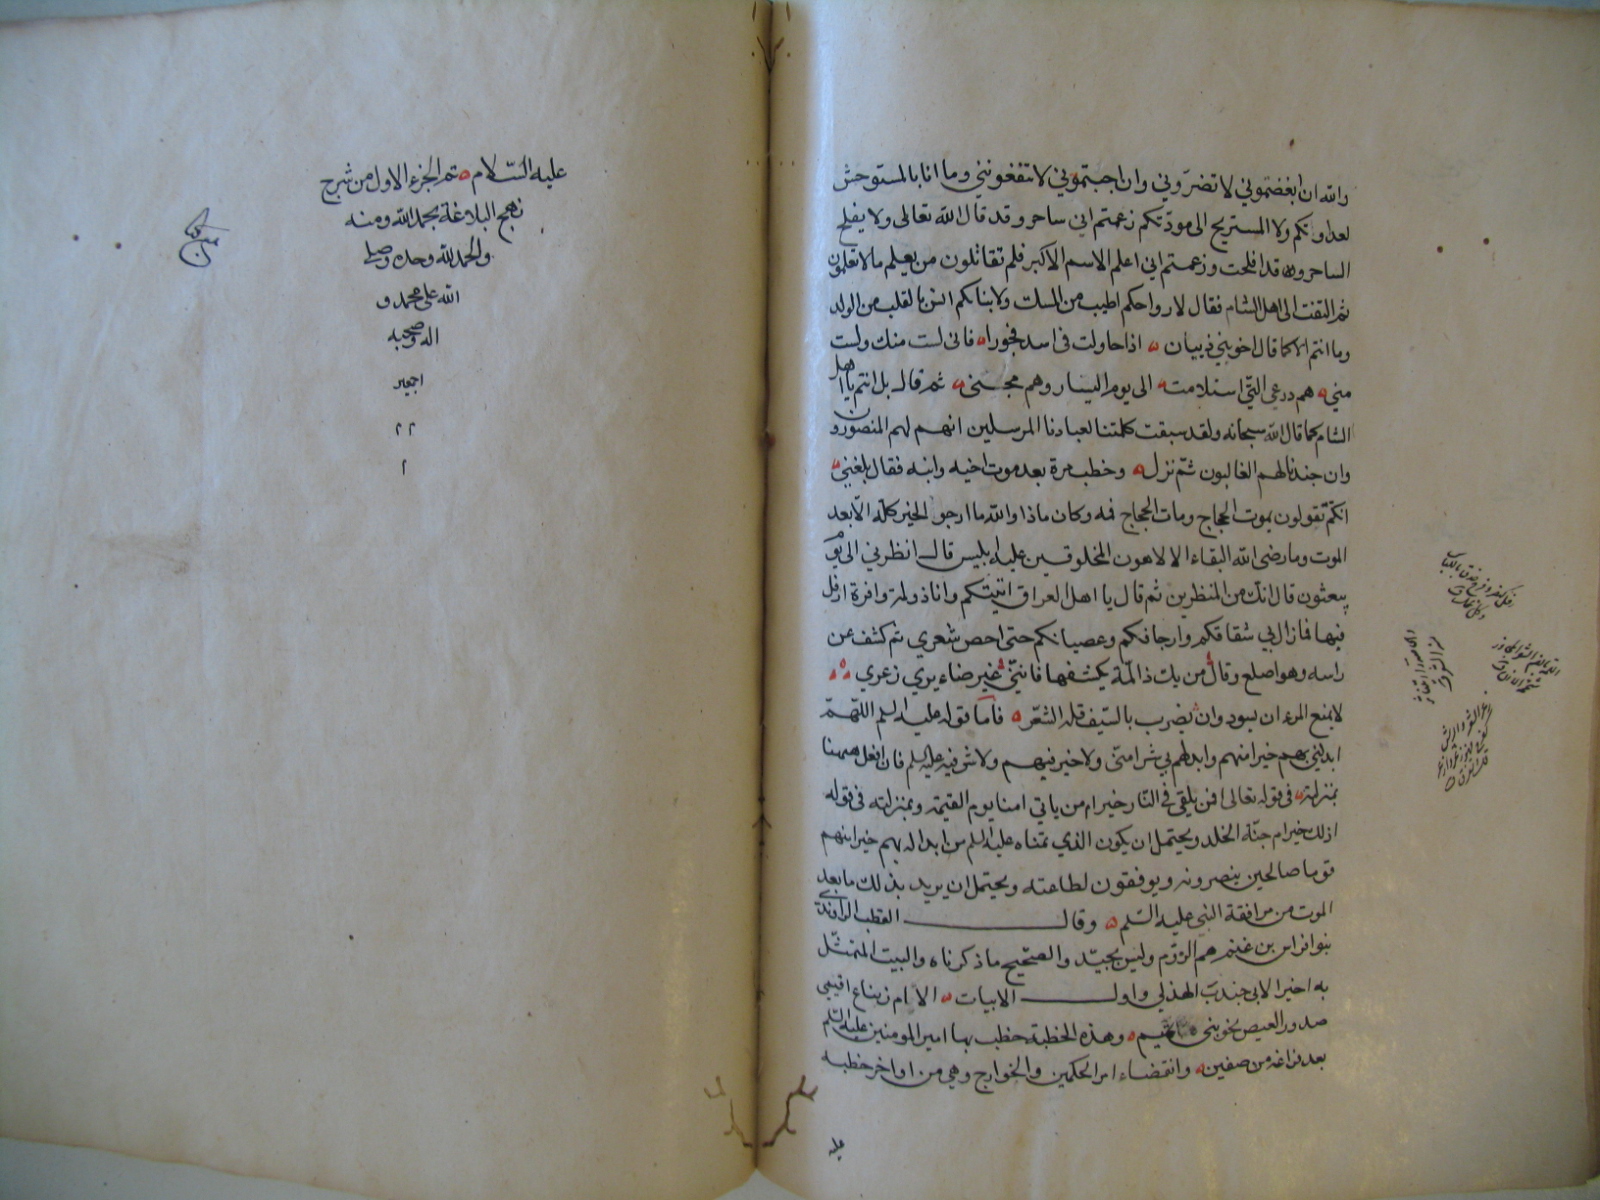 والله ان ابغضتموني لا تضروني وان احببتموني لا تنفعونني وما انا بالمستوحش
لعداوتكم ولا المستريح الى مودتكم زعمتم اني ساحر وقد قال الله تعالى ولا يفلح
الساحرون قد افلحت وزعمتم اني اعلم الاسم الاكبر فلم تقاتلون من يعلم ما لا تعلمون
ثم التفت الى اهل الشام فقال لارواحكم اطيب من المسك ولابناكم انس بالقلب من الولد
وما انتم الا كما قال اخو بني ذبيان ه اذا حاولت في اسد فجورا ه فاني لست منك ولست
مني ه هم درعي التي استلامت ه الى يوم اليسار وهم مجني ه ثم قال بل انتم يا اهل
الشام كما قال الله سبحانه ولقد سبقت كلمتنا لعبادنا المرسلين انهم لهم المنصورون
وان جندنا لهم الغالبون ثم نزل ه وخطب مرة بعد موت اخيه وابنه فقال بلغني
انكم تقولون يموت الحجاج ومات الحجاج فمه وكان ماذا والله ما ارجو الخير كله الا بعد
الموت وما رضى الله البقاء الا لاهون المخلوقين عليه ابليس قال انظرني الى يوم
يبعثون قال انك من المنظرين ثم قال يا اهل العراق اتيتكم وانا ذو لمة وافرة ارفل
فيها فما زال بي شقاقكم وارجافكم وعصيانكم حتى احص شعري ثم كشف عن
راسه وهو اصلع وقال من يك ذا لمة يكشفها فانني غير ضاءيري زعري ه
لا يمنع المرء ان يسود وان يضرب بالسيف قلة الشعر ه فاما قوله عليه السلم اللهم
ابدلني بهم خيرا منهم وابدلهم بي شرا مني ولا خير فيهم ولا شر فيه عليه السلم فان افعل ههنا
بمنزلته في قوله تعالى افمن يلقى في النار خير ام من ياتي امنا يوم القيمة وبمنزلته في قوله
اذلك خير ام جنة الخلد ويحتمل ان يكون الذي تمناه عليه السلم من ابداله بهم خيرا منهم
قوما صالحين ينصرونه ويوفقون لطاعته ويحتمل ان يريد بذلك ما بعد
الموت من مرافقة النبي عليه السلم ه وقال القطب الراوندي
بنو افراس بن غنم هم الروم وليس بجيد والصحيح ما ذكرناه والبيت المتمثل
به اخيرا لابي جندب الهذلي واول الابيات ه الا يا ام زنباع اقيمي
صدور العيس نحو بني تميم ه وهذه الخطبة خطب بها امير المومنين عليه السلم
بعد فراغه من صفين ه وانقضاء امر الحكمين والخوارج وهي من اواخر خطبه
عليه السلام ه تم الجزء الاول من شرح
نهج البلاغة بحمد الله ومنه
والحمد لله وحده وصلى
الله على محمد و
اله وصحبه
اجمعين
م م
م